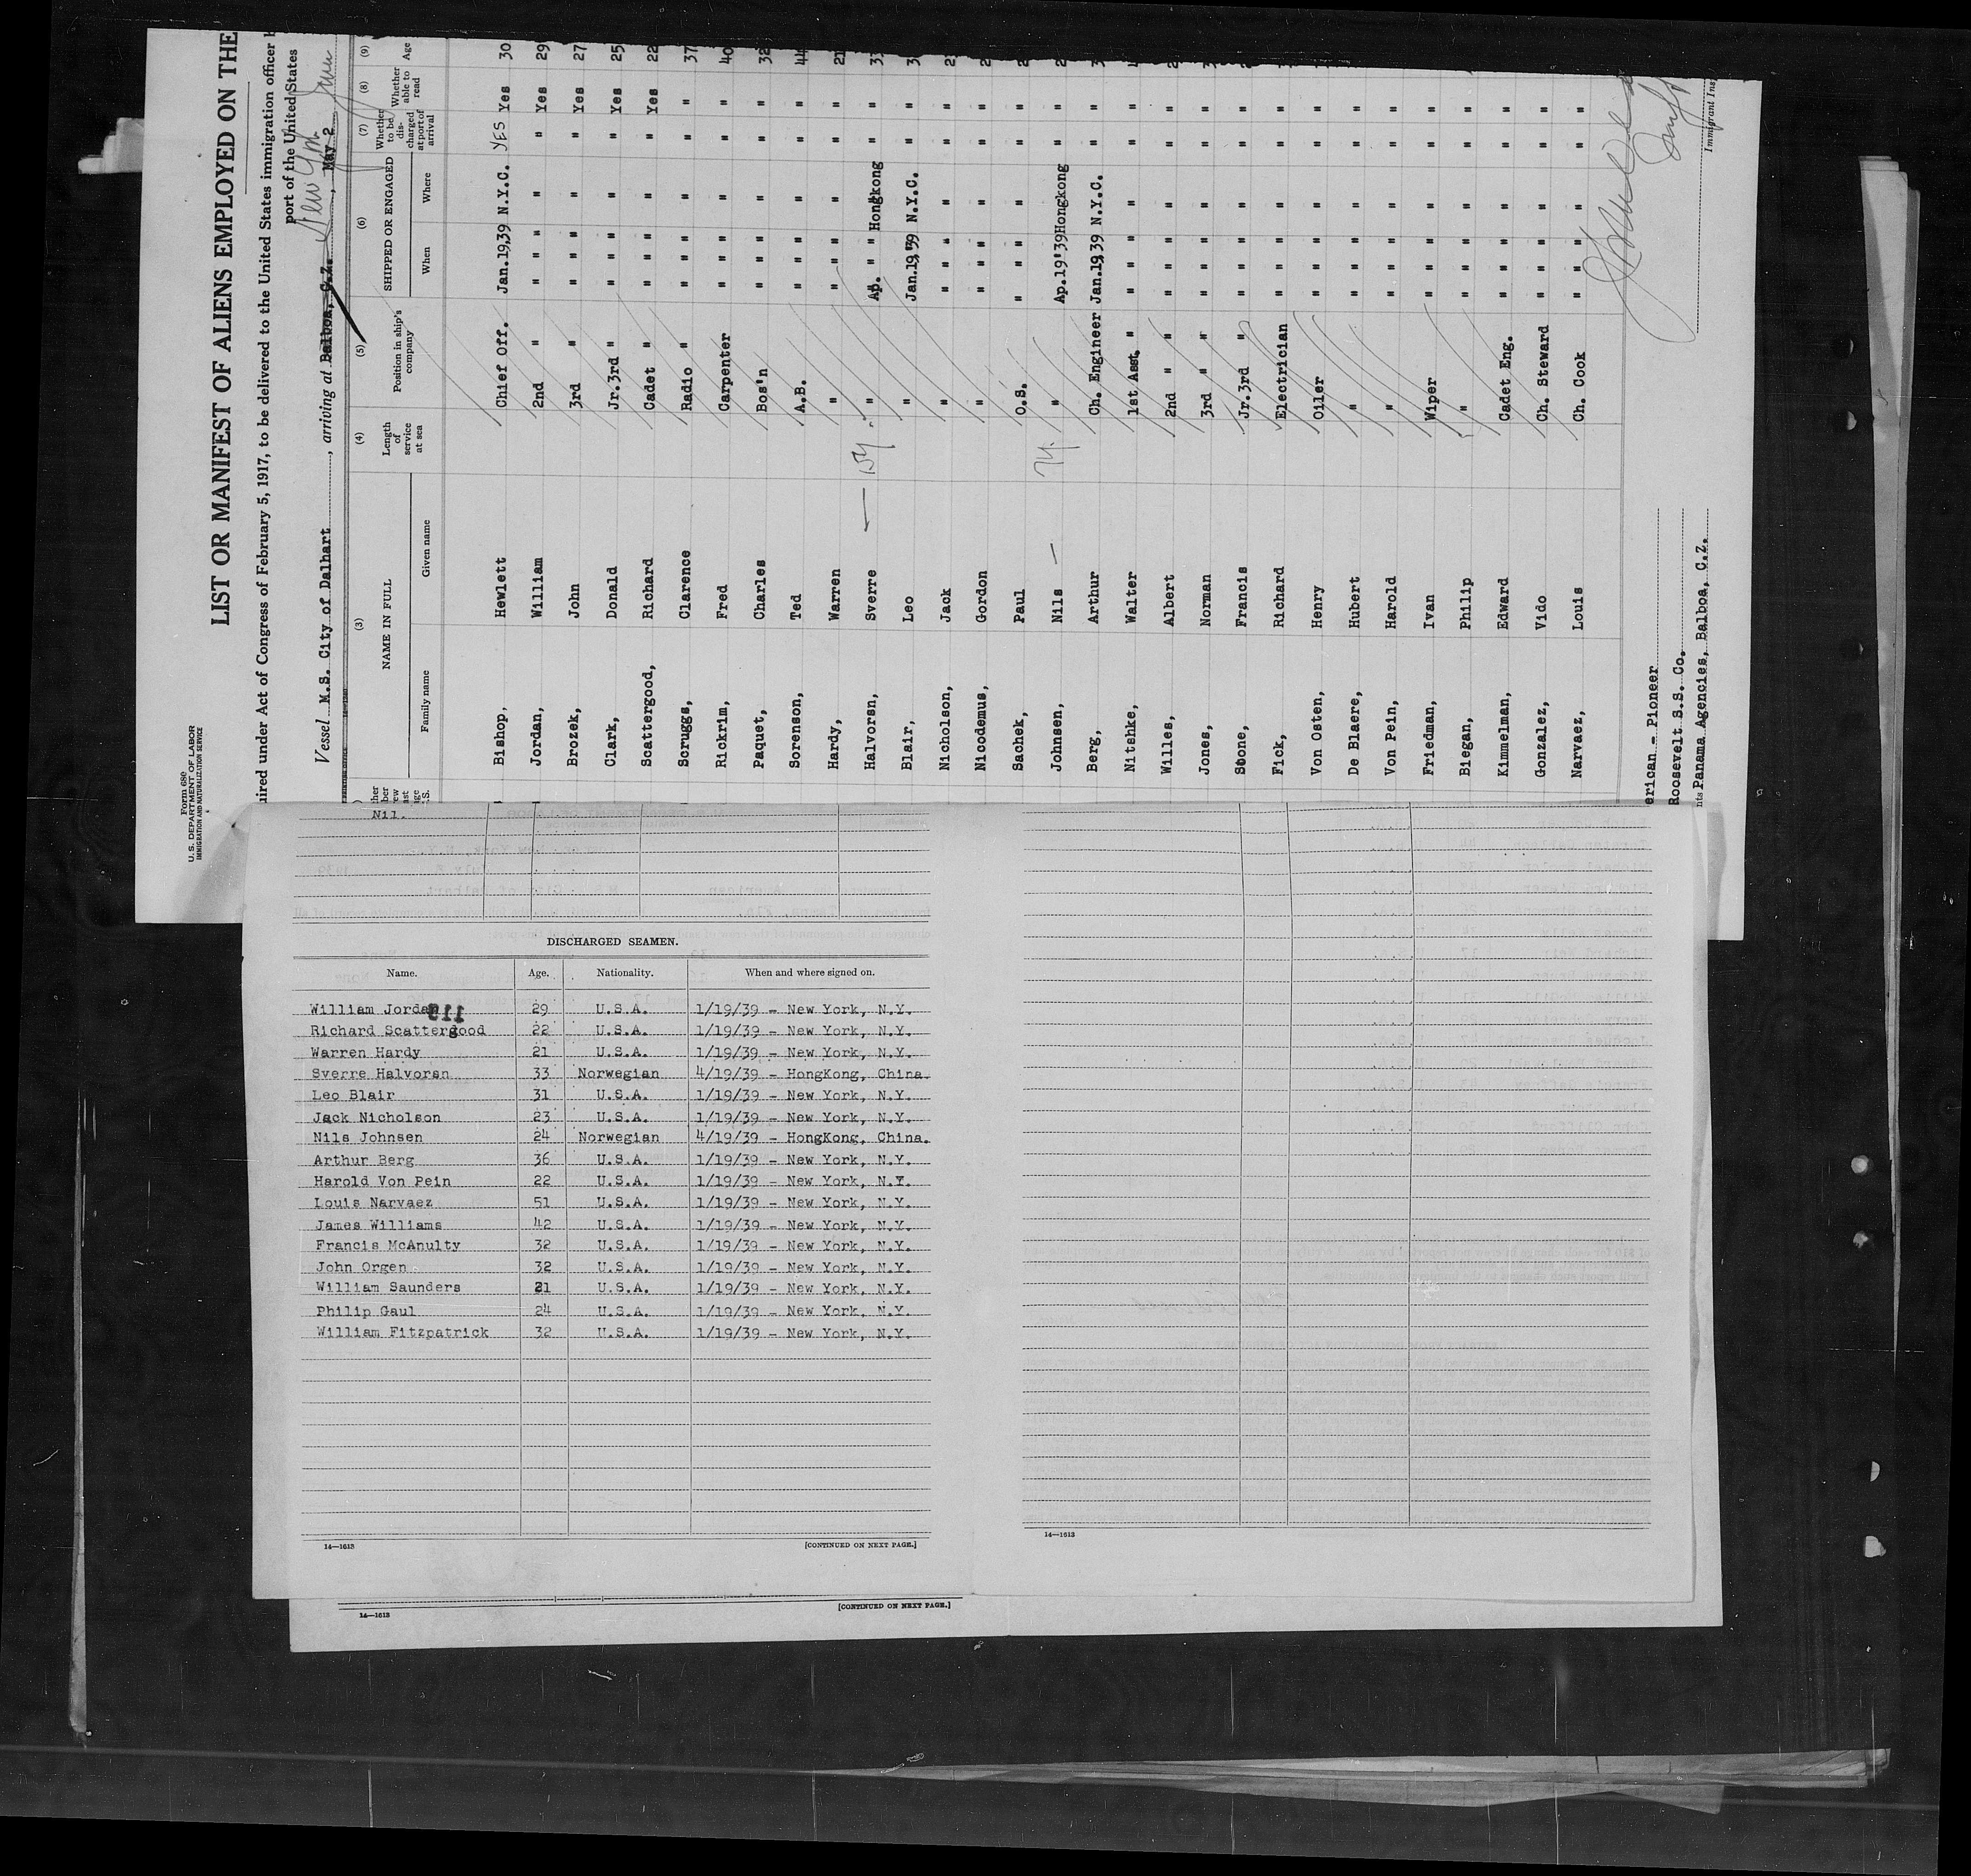 Form 680
U. S. DEPARTMENT OF LABOR
IMMIGRATION AND NATURALIZATION SERVICE
LIST OR MANIFEST OF ALIENS EMPLOYED ON THE
uired under Act of Congress of February 5, 1917, to be delivered to the United States immigration officer
port of the United States
Vessel M.S. City of Dalhart, arriving at Balboa, C.Z. New York, May 2 June
(3) (4) (5) (6) (7) (8) (9)
NAME IN FULL Length of service at sea Position in ship's company SHIPPED OR ENGAGED Whether to be discharged at port of arrival Whether able to read Age
Family name Given name When Where
Bishop, Hewlett Chief Off. Jan.19,39 N.Y.C. YES Yes 30
Jordan, William 2nd " " " " " Yes 29
Brozek, John 3rd " " " " " Yes 27
Clark, Donald Jr.3rd " " " " " Yes 25
Scattergood, Richard Cadet " " " " " Yes 22
Scruggs, Clarence Radio " " " " " " 37
Rickrim, Fred Carpenter " " " " " 40
Paquet, Charles Bos'n " " " " " 32
Sorenson, Ted A.B. " " " " " 44
Hardy, Warren " " " " " " 21
Halvorsn, Sverre " Ap. " " Hongkong " " 33
Blair, Leo " Jan.19,'39 N.Y.C. " "
Nicholson, Jack " " " " " "
Nicodemus, Gordon " " " " " "
Sachek, Paul O.S. " " " " "
Johnsen, Nils " Ap.19'39 Hongkong " "
Berg, Arthur Ch. Engineer Jan.19,39 N.Y.C. " "
Nitshke, Walter 1st Asst. " " " " " "
Willes, Albert 2nd " " " " " "
Jones, Norman 3rd " " " " " "
Stone, Francis Jr.3rd " " " " " "
Fick, Richard Electrician " " " " "
Von Osten, Henry Oiler " " " " "
De Blaere, Hubert " " " " " "
Von Pein, Harold " " " " " "
Friedman, Ivan Wiper " " " " "
Biegan, Philip " " " " " "
Kimmelman, Edward Cadet Eng. " " " " "
Gonzalez, Vido Ch. Steward " " " " "
Narvaez, Louis Ch. Cook " " " " "
erican - Pioneer
Roosevelt S.S. Co.
nts Panama Agencies, Balboa, C.Z.
Immigrant Ins
Nil.
DISCHARGED SEAMEN.
Name. Age. Nationality. When and where signed on.
William Jordan 29 U.S.A. 1/19/39 - New York, N.Y.
Richard Scattergood 22 U.S.A. 1/19/39 - New York, N.Y.
Warren Hardy 21 U.S.A. 1/19/39 - New York, N.Y.
Sverre Halvorsn 33 Norwegian 4/19/39 - HongKong, China.
Leo Blair 31 U.S.A. 1/19/39 - New York, N.Y.
Jack Nicholson 23 U.S.A. 1/19/39 - New York, N.Y.
Nils Johnsen 24 Norwegian 4/19/39 - HongKong, China.
Arthur Berg 36 U.S.A. 1/19/39 - New York, N.Y.
Harold Von Pein 22 U.S.A. 1/19/39 - New York, N.Y.
Louis Narvaez 51 U.S.A. 1/19/39 - New York, N.Y.
James Williams 42 U.S.A. 1/19/39 - New York, N.Y.
Francis McAnulty 32 U.S.A. 1/19/39 - New York, N.Y.
John Orgen 32 U.S.A. 1/19/39 - New York, N.Y.
William Saunders 21 U.S.A. 1/19/39 - New York, N.Y.
Philip Gaul 24 U.S.A. 1/19/39 - New York, N.Y.
William Fitzpatrick 32 U.S.A. 1/19/39 - New York, N.Y.
14—1613 [CONTINUED ON NEXT PAGE.]
14—1613
14—1613 [CONTINUED ON NEXT PAGE.]